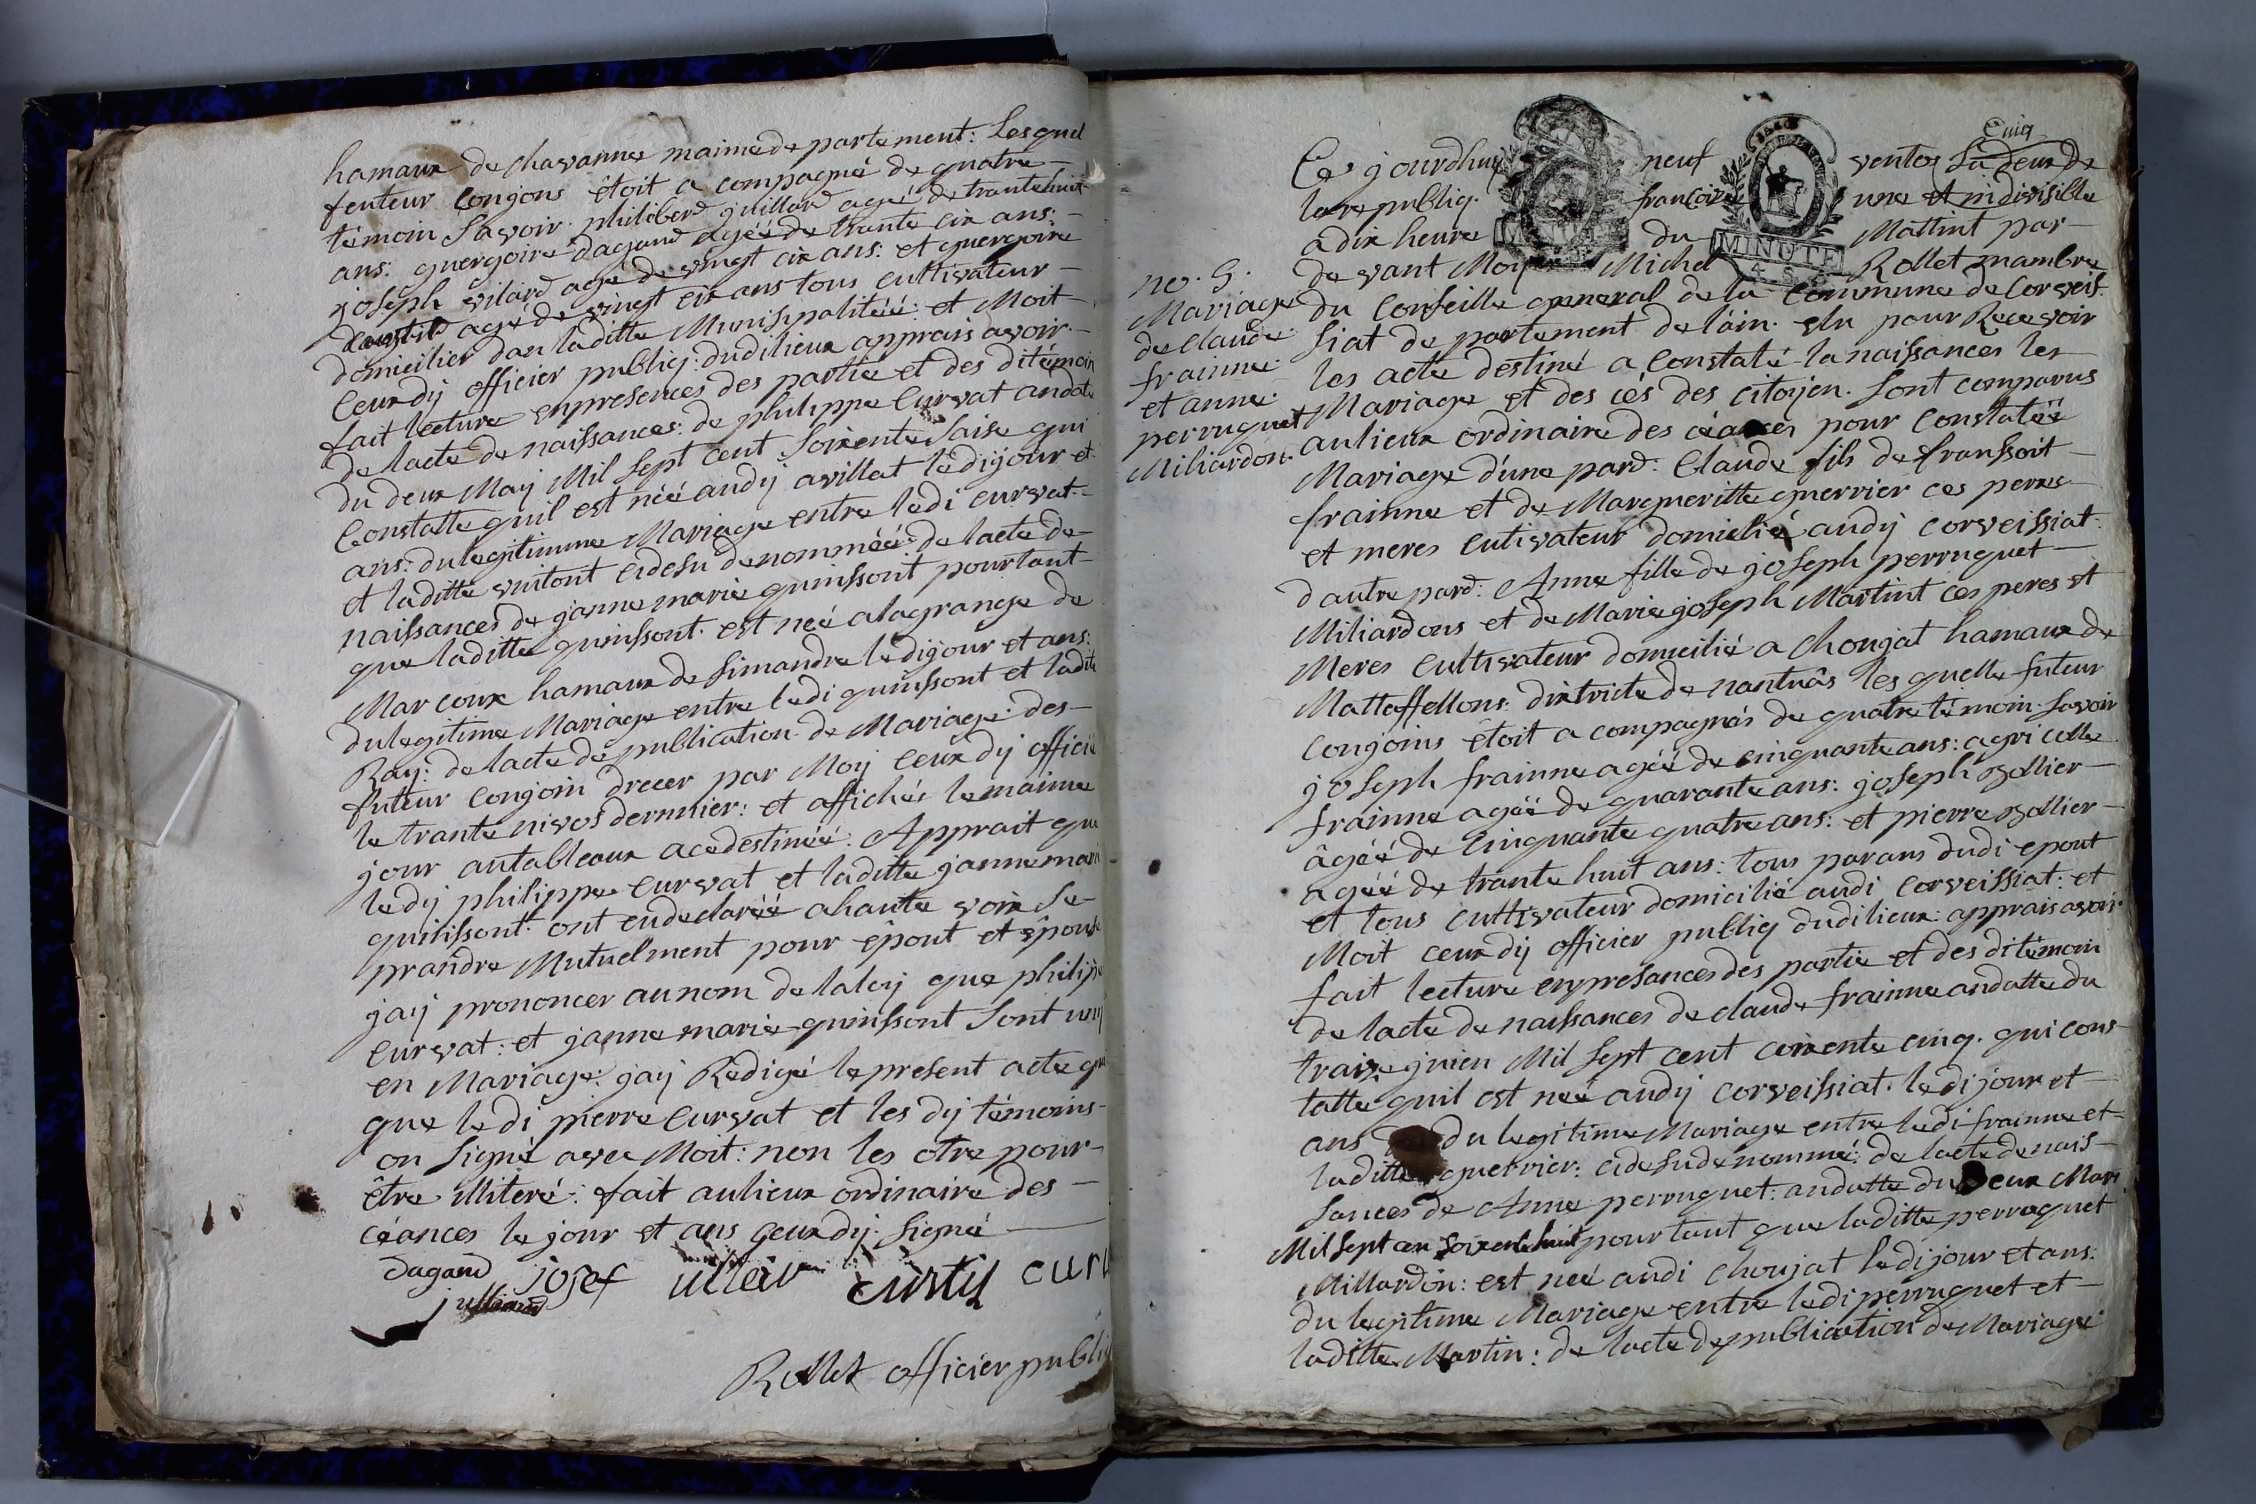 hamaux de chavanne maime departement: Lesquel
feuteur Conjons étoit a compagné de quatre
témoin Savoir. philiberd juillard agé de trantehuit
ans: guergoire dagand agéé de trante cix ans:
joseph vilard agé de vingt cix ans: et guergoire
Curstil agé de vingt cix ans tous cultivateur
domicilier dan laditte Munisipalitéé: et Moit
Ceuxdy officier publiq: dudilieux apprais avoir
fait lecture enpresences des partie et des ditémoin
de lacte de naissances: de philippe Curvat andate
du deux May Mil Sept Cent Soixente Saise qui
Constatte quil est néé audy avillat ledijour et
ans: du legitimme Mariage entre ledi curvat
et laditte vuitont cidesu denomméé: de lacte de
naissances de janne marie quinssont pourtant
que laditte quinssont. est neé alagrange de
Marcoux hamaux de Simandre ledijour et ans:
dulegitime Mariage entre ledi quinssont et ladite
Ray: de lacte de publication de Mariage: des
futeur Congoin drecer par Moy Ceuxdy officié
le trante nivos dernnier: et affichés lemaime
jour autableaux acedestinéé. Apprait que
ledy philippe Curvat et laditte jannemarie
quinssont. ont eudeclaréé ahaute voix Se
prandre Mutuelment pour êpout et êpouse
jay prononcer aunom de laloy que philippe
Curvat: et janne marie quinssont Sont uny
en Mariage: jay Redigé lepresent acte que
que ledi pierre Curvat et les dy témoins
on Signé avec Moit: non les otre pour
être Miteré: fait aulieux ordinaire des
céances le jour et ans Ceuxdy Signé
dagand josef villar Curtil cur
juilliard
Rollet officier publi
Cinq
Ce jourdhuy neuf ventos Lû deux de
larepubliq. francoise une et indivisible
a dix heure du Mattint par
MINUTE
MINUTE
4 S.
devant Moy Michel Rollet mambre
du Conseille general de la Commune de Corveis
siat departement de láin. elu pour Recevoir
no. 5.
Mariage
de claude
frainne
et anne
perruquet
Miliardon.
les acte destiné a Constaté la naissances les
Mariage et des cés des citoyen. Sont comparus
aulieux ordinaire des céances pour Constatéé
Mariage d'une pard: Claude fils de franssoit
frainne et de Margueritte guerrier ces peres
et meres cutivateur domicilié audy corveissiat.
dautre pard: Anne fille de joseph perruquet
Miliardons et de Mariejoseph Martint ces peres et
Meres cultivateur domicilié a Chonjat hamaux de
Mattaffellons: districte de nantuâs les quelle futeur
Congoins étoit a compagnés de quatre témoin Savoir
joseph frainne agéé de cinquante ans: agricolle
frainne agéé de quarante ans: joseph vollier
âgéé de Cinquante quatre ans: et pierre vollier
agéé de trante huit ans: tous parans dudi epout
et tous cultivateur domicilié audi corveissiat: et
Moit ceuxdy officier publiq dudilieux: apprais avoir
fait lecture enpresances des partie et des ditémoin
de lacte de naissances de claude frainne andatte du
traize juien Mil Sept cent coixente cinq. qui cons
tatte quil est neé audy corveissiat. ledijour et
ans du legitime Mariage entre ledi frainne et
laditte guerrier: cidesudenommé: de lacte de nais
sances de Anne perruquet: andatte du deux Mars
Mil Sept cen Soixente huit pourtant que laditte perruquet
Milliardon: est neé audi chonjat ledijour et ans:
du legitime Mariage entre ledi perruquet et
laditte Martin: de lacte depublication de Mariage